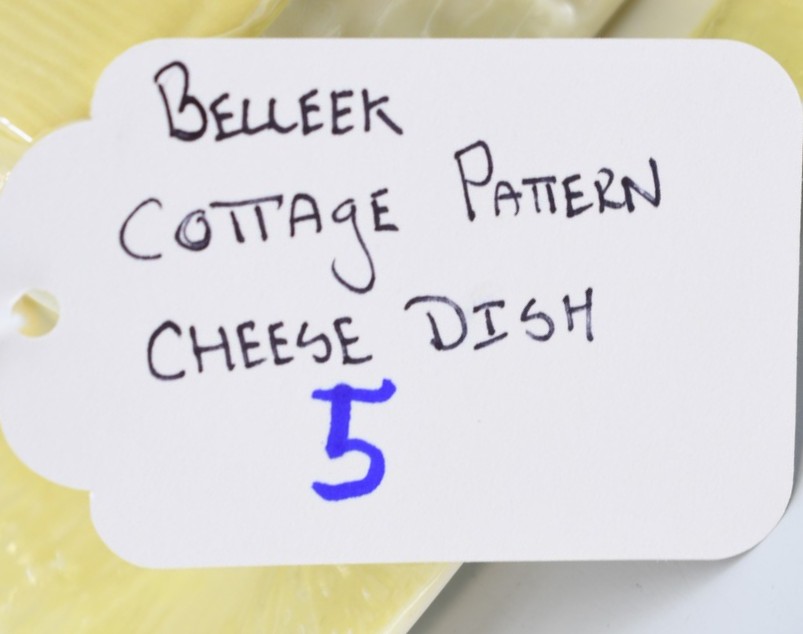 BELLEEK
COTTAGE PATTERN
CHEESE DISH
5